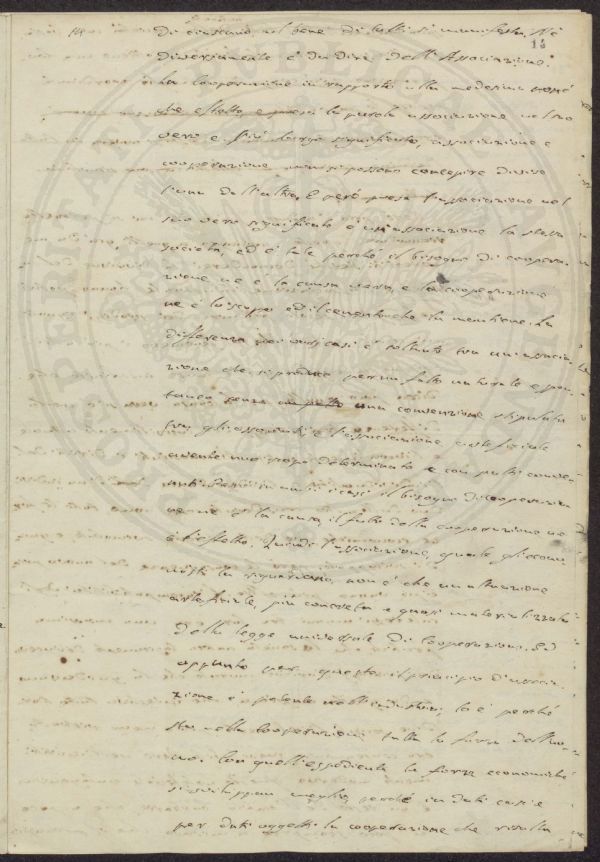 di ciascuno nel bene di tutti si manifesta. Nè
13
diversamente è da dire dell'Associazione.
La Cooperazione in rapporto alla medesima non è
che e la parola associazione nel suo
vero e più largo significato, associazione e
cooperazione non si possono concepire divise
l'una dall'altra. E però presa l'associazione nel
suo vero significato è un'associazione la stessa
società, ed è tale perchè il bisogno di coopera-
zione ne è la causa vera, e la cooperazione
ne è lo scopo ed il cemento che la mantiene. La
differenza nei vari casi è soltanto tra un'associa-
zione che si produce per un fatto naturale e spon-
taneo senza una convenzione stipulata
tra gli associati, e l'associazione artificiale
avente uno scopo determinato e con patti
in tutti i casi il bisogno di cooperazione
ne è la causa, il fatto della cooperazione ne
è l'effetto. Quindi l'associazione, quale gli econo-
misti la riguardano, non è che un'attuazione
artificiale, più concreta e quasi materializzata
della legge universale di Cooperazione. Ed
appunto per questo il principio d'associa-
zione è potente nell'industria, lo è perchè
sta nella Cooperazione tutta la forza dell'uo-
mo. Con quell'espediente le forze economiche
si sviluppan meglio, perchè in dati casi e
per dati oggetti la cooperazione che risulta